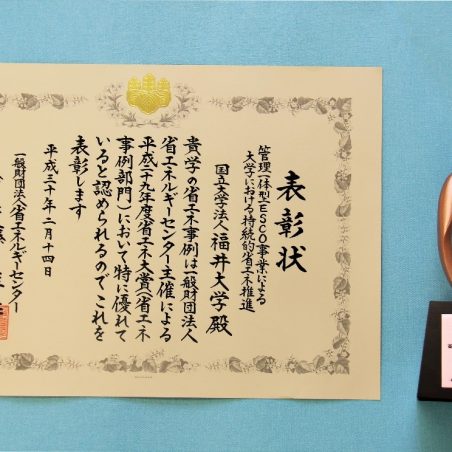 表彰状
管理一体型ESCO事業による
大学における持続的省エネ推進
国立大学法人 福井大学殿
貴学の省エネ事例は一般財団法人
省エネルギーセンター主催による
平成二十九年度省エネ大賞(省エネ
事例部門)において特に優れて
いると認められるのでこれを
表彰します
平成三十年二月十四日
一般財団法人省エネルギーセンター